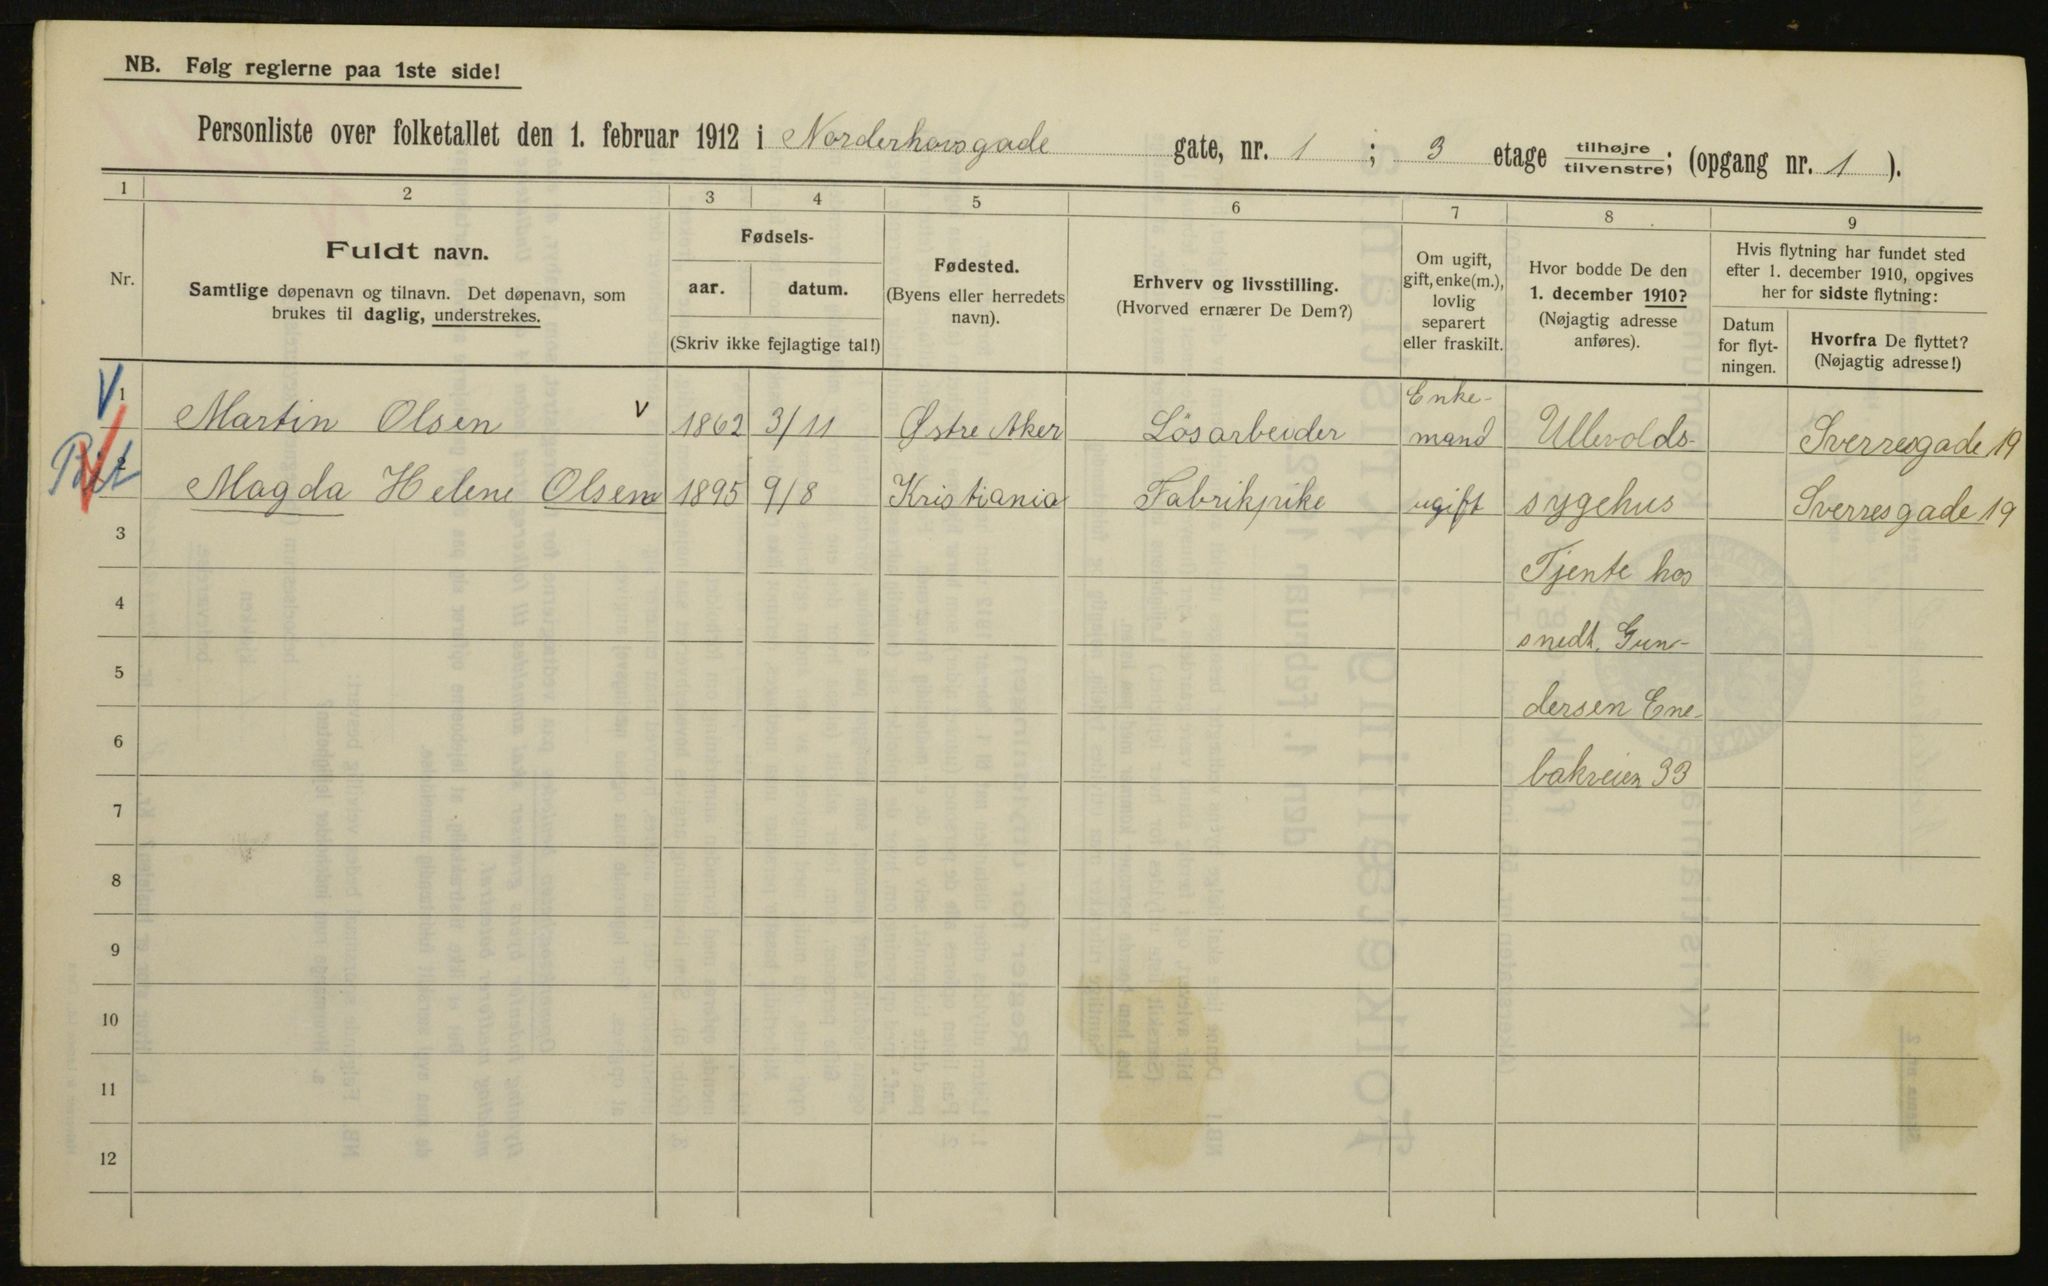 NB. Følg reglerne paa 1ste side!
Personliste over folketallet den 1. februar 1912 i Norderhovsgade gate, nr. 1 ; 3 etage tilhøjre/tilvenstre; (opgang nr. 1 ).
1 2 3 4 5 6 7 8 9
Nr.
Fuldt navn.
Samtlige døpenavn og tilnavn. Det døpenavn, som
brukes til daglig, understrekes.
Fødsels-
aar. datum.
(Skriv ikke fejlagtige tal!)
Fødested.
(Byens eller herredets
navn).
Erhverv og livsstilling.
(Hvorved ernærer De Dem?)
Om ugift,
gift, enke(m.),
lovlig
separert
eller fraskilt.
Hvor bodde De den
1. december 1910?
(Nøjagtig adresse
anføres).
Hvis flytning har fundet sted
efter 1. december 1910, opgives
her for sidste flytning:
Datum
for flyt-
ningen.
Hvorfra De flyttet?
(Nøjagtig adresse!)
V 1 Martin Olsen v 1862 3/11 Østre Aker Lösarbeider Enke-
mand Ullevolds- Sverresgade 19
2 Magda Helene Olsen 1895 9/8 Kristiania Fabrikpike ugift sygehus Sverresgade 19
3 Tjente hos
4 snedk. Gun-
5 dersen Ene-
6 bakveien 33
7
8
9
10
11
12